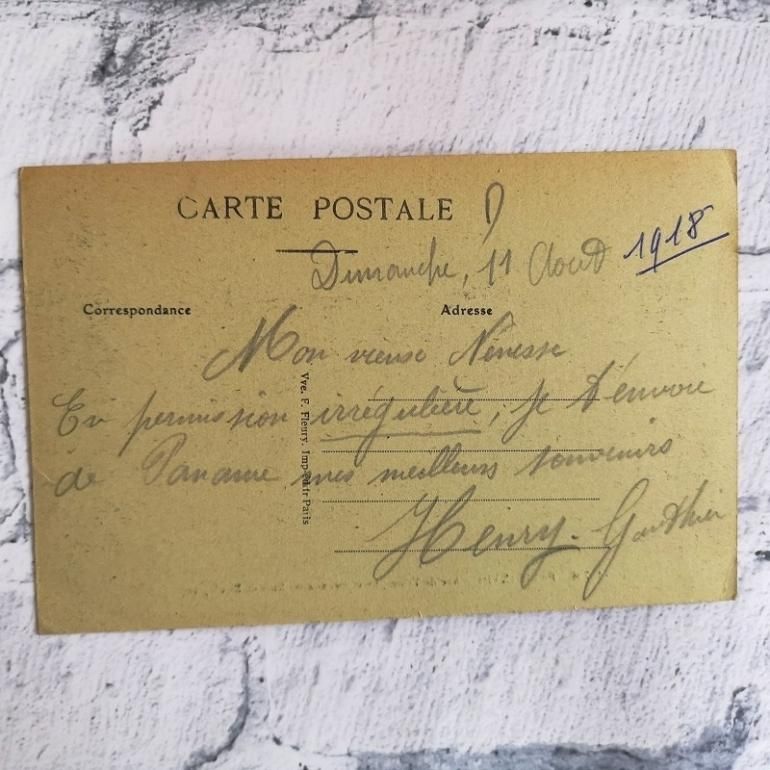 CARTE POSTALE
Dimanche, 11 Août 1918
Correspondance
Adresse
Mon vieux Nénesse
En permission irrégulière, je t'envoie
de Paname mes meilleurs souvenirs
Henry Gauthier
Vve. F. Fleury, Imp-Édtr Paris